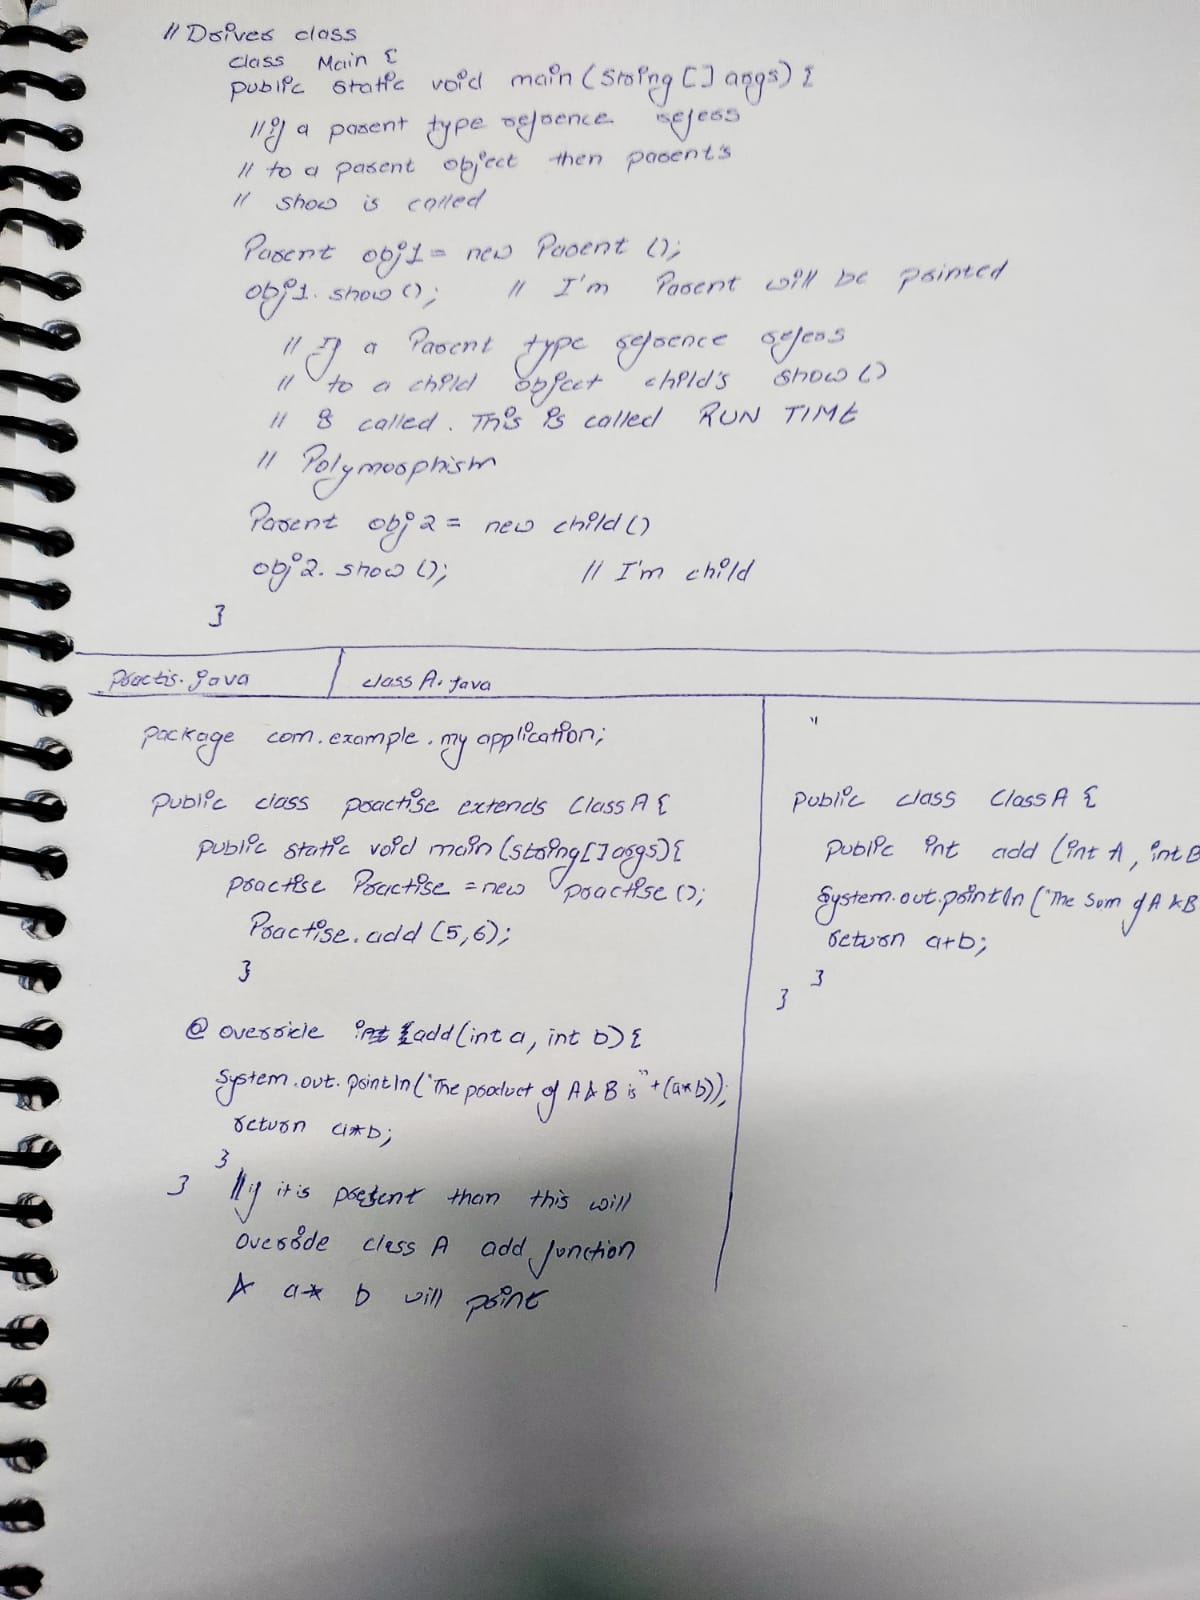 // Driver class
class Main {
public static void main (String [] args) {
// if a parent type refrence refers
// to a parent object then parent's
// show is called
Parent obj1 = new Parent ();
obj1. show (); // I'm Parent will be printed
// If a Parent type refrence refers
// to a child object child's show ()
// is called. This is called RUN TIME
// Polymorphism
Parent obj 2 = new child ()
obj 2. show (); // I'm child
}
Practis. java | class A. java
package com. example. my application;
public class practise extends Class A {
public static void main (String [] args) {
practise Practise = new practise ();
Practise. add (5,6);
}
@ override int add (int a, int b) {
System. out. println ("The product of A & B is" + (a*b));
return a*b;
}
} // if it is present than this will
override class A add function
& a* b will print
"
public class Class A {
public int add (int A, int B
System. out. println ("The Sum of A & B
return a+b;
}
}